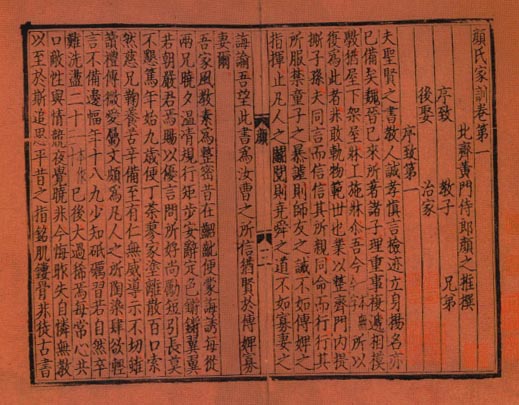 顔氏家訓卷第一
北齊黄門侍郎顔之推撰
序致 教子 兄弟
後娶 治家
序致第一
夫聖賢之書教人誠孝慎言檢迹立身揚名亦
已備矣魏晉已來所著諸子理重事複遞相模
斆猶屋下架屋牀上施牀尒吾今所以
復爲此者非敢軌物範世也業以整齊門內提
撕子孫夫同言而信信其所親同命而行行其
所服禁童子之暴謔則師友之誡不如傅婢之
指揮止凡人之鬭鬩則堯舜之道不如寡妻之
誨諭吾望此書爲汝曹之所信猶賢於傅婢寡
妻爾
吾家風教素爲整密昔在齠齔便蒙誨誘每從
兩兄曉夕溫凊規行矩步安辭定色鏘鏘翼翼
若朝嚴君焉賜以優言問所好尚勵短引長莫
不懇篤年始九歲便丁荼蓼家塗離散百口索
然慈兄鞠養苦辛備至有仁無威導示不切雖
讀禮傳微愛屬文頗爲凡人之所陶染肆欲輕
言不備邊幅年十八九少知砥礪習若自然卒
難洗盪二十已後大過稀焉每常心共
口敵性與情競夜覺曉非今悔昨失自憐無教
以至於斯追思平昔之指銘肌鏤骨非徒古書